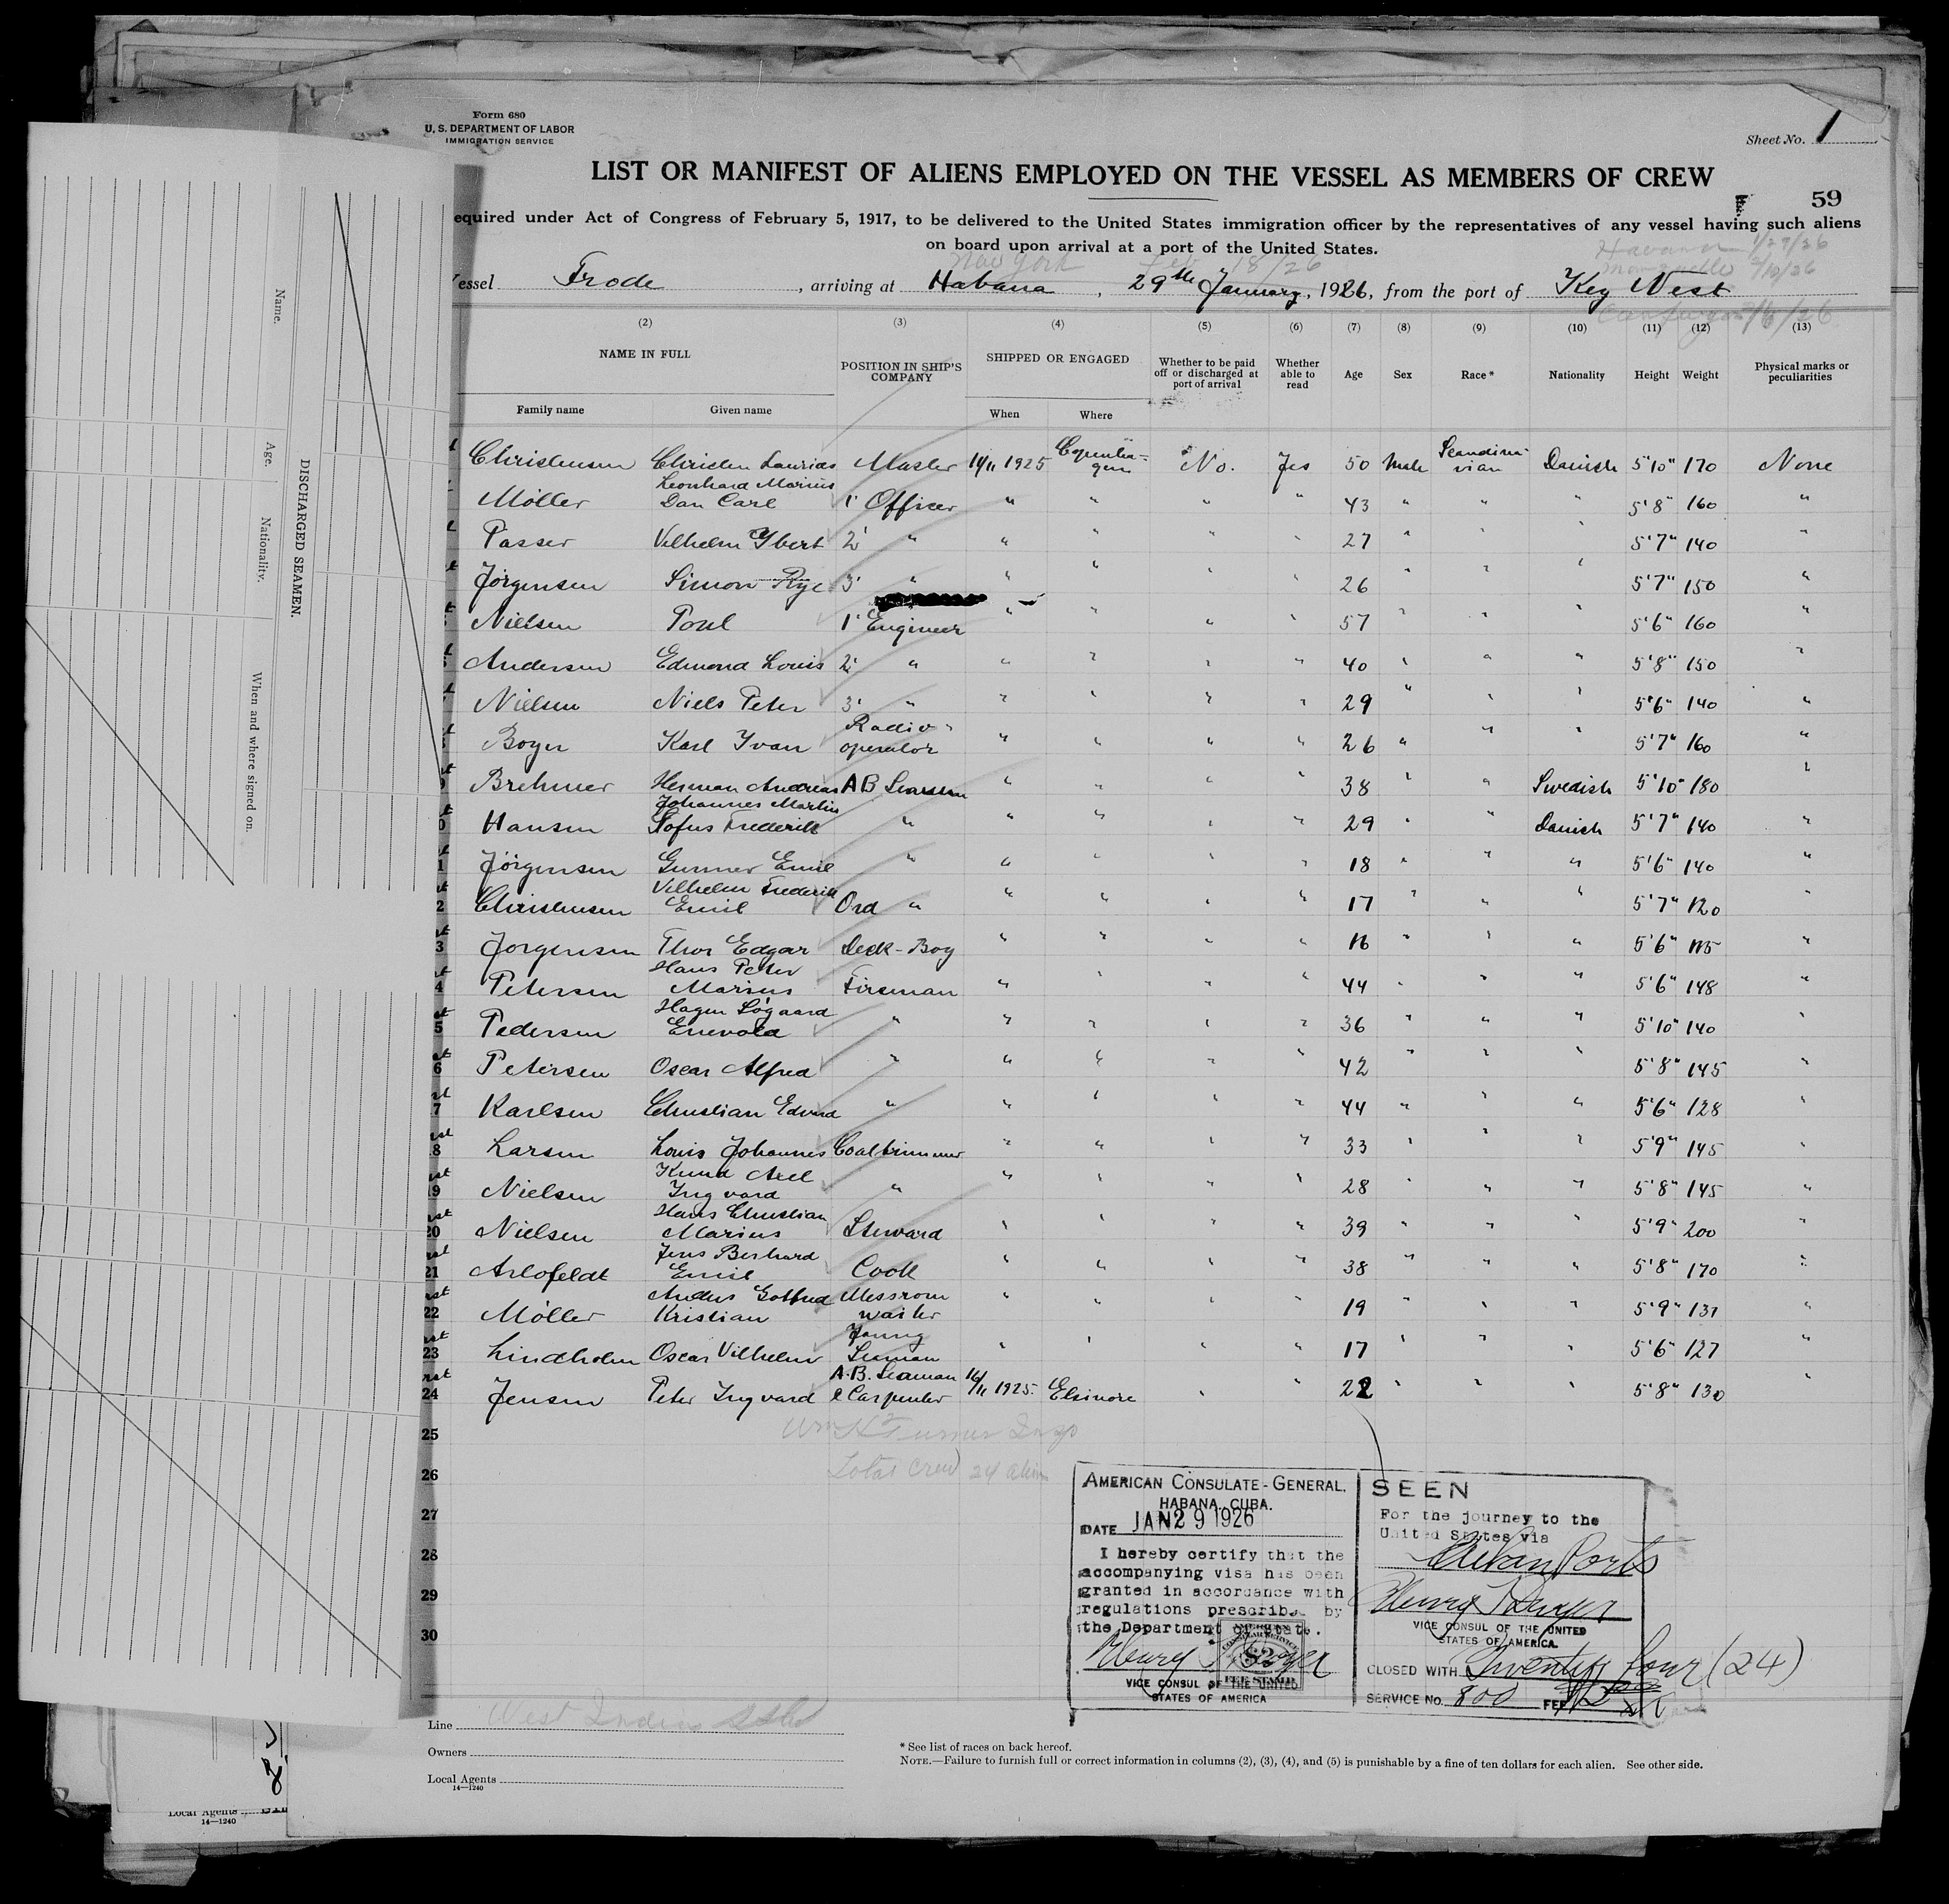 Form 680
U. S. DEPARTMENT OF LABOR
IMMIGRATION SERVICE
Sheet No. 1
LIST OR MANIFEST OF ALIENS EMPLOYED ON THE VESSEL AS MEMBERS OF CREW
59
equired under Act of Congress of February 5, 1917, to be delivered to the United States immigration officer by the representatives of any vessel having such aliens
on board upon arrival at a port of the United States.
Havana 1/29/26
New York Feb 18/26 2/10/26
essel Frode, arriving at Habana, 29th January, 1926, from the port of Key West
(2) (3) (4) (5) (6) (7) (8) (9) (10) (11) (12) (13)
NAME IN FULL POSITION IN SHIP'S COMPANY SHIPPED OR ENGAGED Whether to be paid off or discharged at port of arrival Whether able to read Age Sex Race* Nationality Height Weight Physical marks or peculiarities
Family name Given name When Where
Christensen Christen Laurids Master 14/11 1925 Copenhagen No. Yes 50 Male Scandinavian Danish 5'10" 170 None
Möller Leonhard Marius Dan Carl 1' Officer " " " " 43 " " " 5'8" 160 "
Passer Vilhelm Ybert 2' " " " " " 27 " " 5'7" 140 "
Jørgensen Simon Rye 3' " " " " 26 " " " 5'7" 150 "
Nielsen Poul 1' Engineer " " " " 57 " " " 5'6" 160 "
Andersen Edmond Louis 2' " " " " " 40 " " " 5'8" 150 "
Nielsen Niels Peter 3' " " " " " 29 " " " 5'6" 140 "
Boyer Karl Yvan Radio operator " " " " 26 " " " 5'7" 160 "
Brehmer Herman Andreas AB Seaman " " " " 38 " " Swedish 5'10" 180 "
Hansen Johannes Martin Sofus Frederik " " " " " 29 " " Danish 5'7" 140 "
Jörgensen Gunner Emil " " " " " 18 " " " 5'6" 140 "
Christensen Vilhelm Frederik Emil Ord " " " " " 17 " " " 5'7" 120 "
Jorgensen Thor Edgar Deck-Boy " " " " 16 " " " 5'6" 115 "
Petersen Hans Peter Marius Fireman " " " " 44 " " " 5'6" 148 "
Pedersen Hagen Sögaard Enevold " " " " " 36 " " " 5'10" 140 "
Petersen Oscar Alfred " " " " " 42 " " " 5'8" 145 "
Karlsen Christian Edvard " " " " " 44 " " " 5'6" 128 "
Larsen Louis Johannes Coaltrimmer " " " " 33 " " " 5'9" 145 "
Nielsen Knud Axel Ingvard " " " " " 28 " " " 5'8" 145 "
Nielsen Hans Christian Marius Steward " " " " 39 " " " 5'9" 200 "
Jens Bernhard Emil Cook " " " " 38 " " " 5'8" 170 "
Möller Anders Gotfred Kristian Messroom waiter " " " " 19 " " " 5'9" 131 "
Lindholm Oscar Vilhelm Young Seaman " " " " 17 " " " 5'6" 127 "
24 Jensen Peter Ingvard A.B. Seaman & Carpenter 16/11 1925. Elsinore " " 22 " " " 5'8" 130 "
25
Total Crew 24 aliens
26
27
28
29
30
AMERICAN CONSULATE-GENERAL,
HABANA, CUBA.
DATE JAN 29 1926
I hereby certify that the
accompanying visa has been
granted in accordance with
regulations prescribed by
the Department of State.
VICE CONSUL OF THE UNITED
STATES OF AMERICA
AMERICAN
CONSULAR SERVICE
$2
FEE STAMP
SEEN
For the journey to the
United States via
Cuban Ports
VICE CONSUL OF THE UNITED
STATES OF AMERICA.
CLOSED WITH Twenty four (24)
SERVICE No. 800 FEE
Line West Indies
Owners
Local Agents
14—1240
* See list of races on back hereof.
NOTE.—Failure to furnish full or correct information in columns (2), (3), (4), and (5) is punishable by a fine of ten dollars for each alien. See other side.
DISCHARGED SEAMEN.
Name.
Age.
Nationality.
When and where signed on.
Local Agents
14—1240